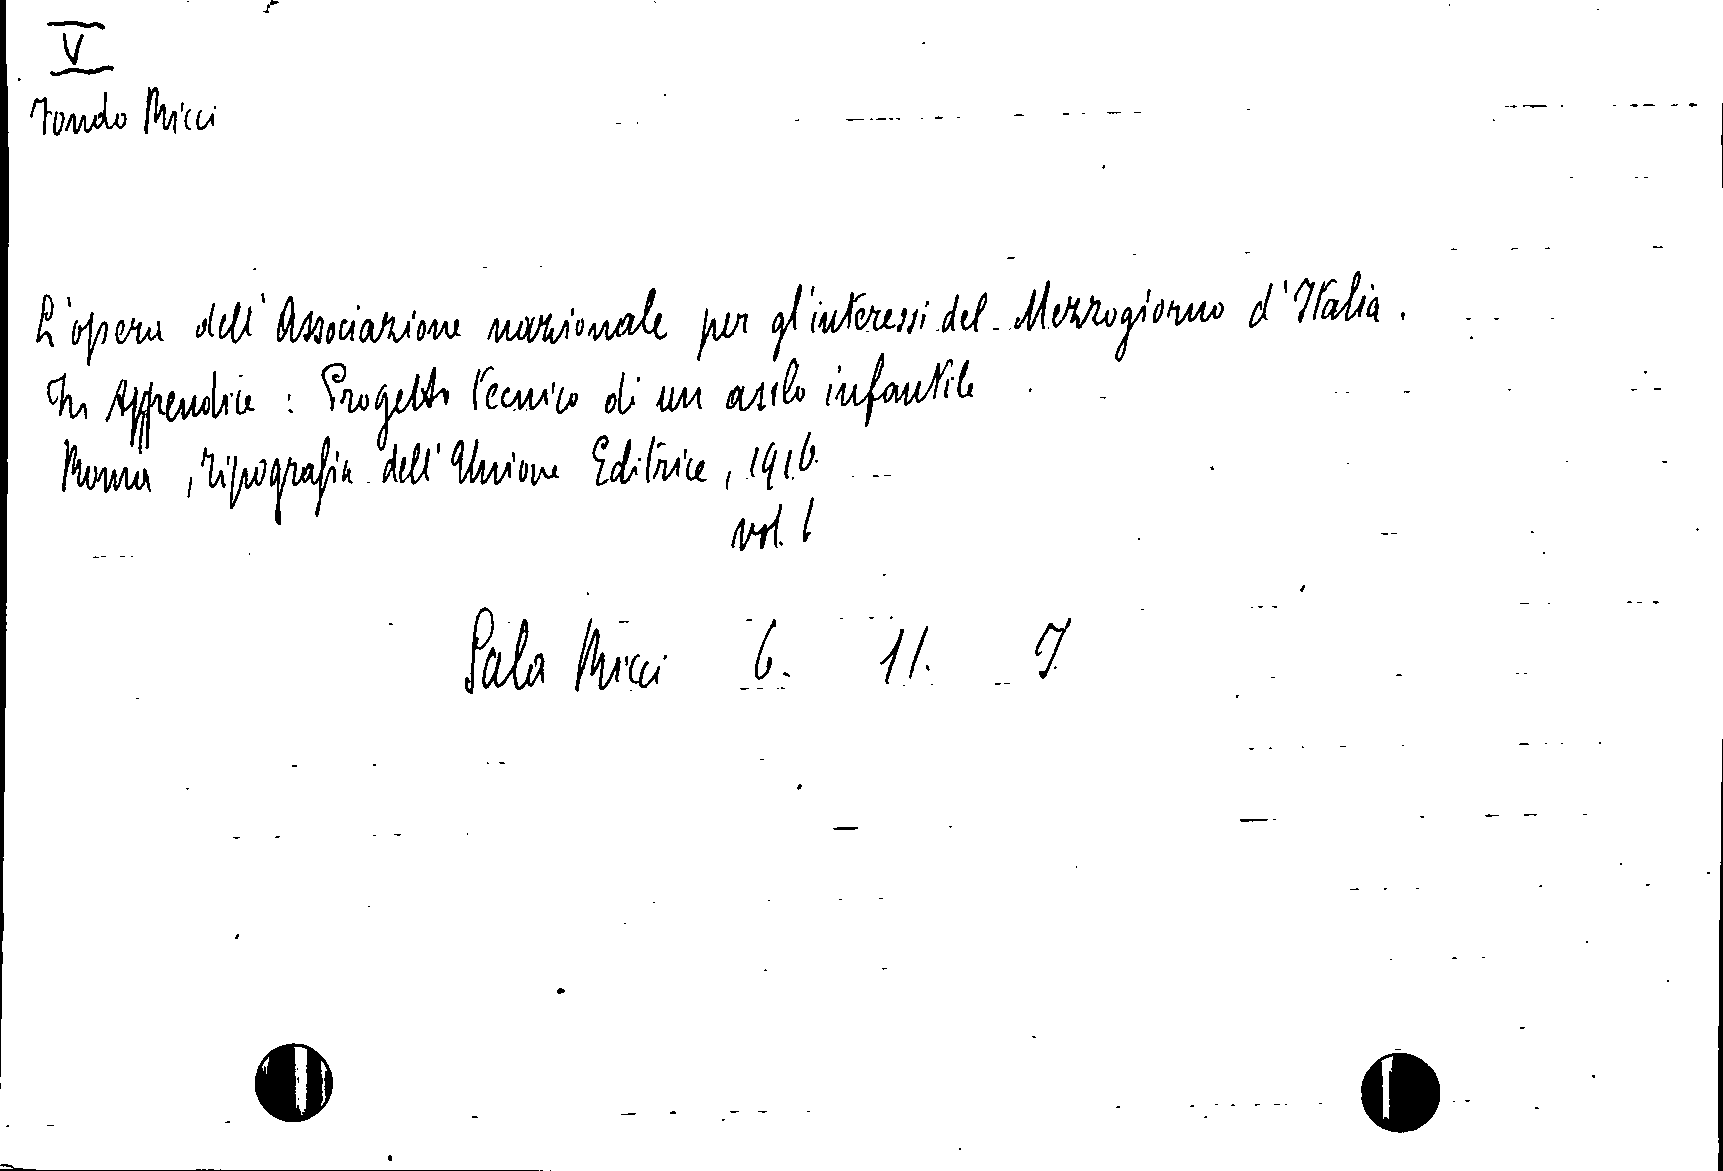 V
Fondo Ricci
L'opera dell'Associazione nazionale per gl'interessi del Mezzogiorno d'Italia.
In Appendice : Progetto tecnico di un asilo infantile
Roma, Tipografia dell'Unione Editrice, 1916.
vol. 1
Sala Ricci 6. 11. 7.